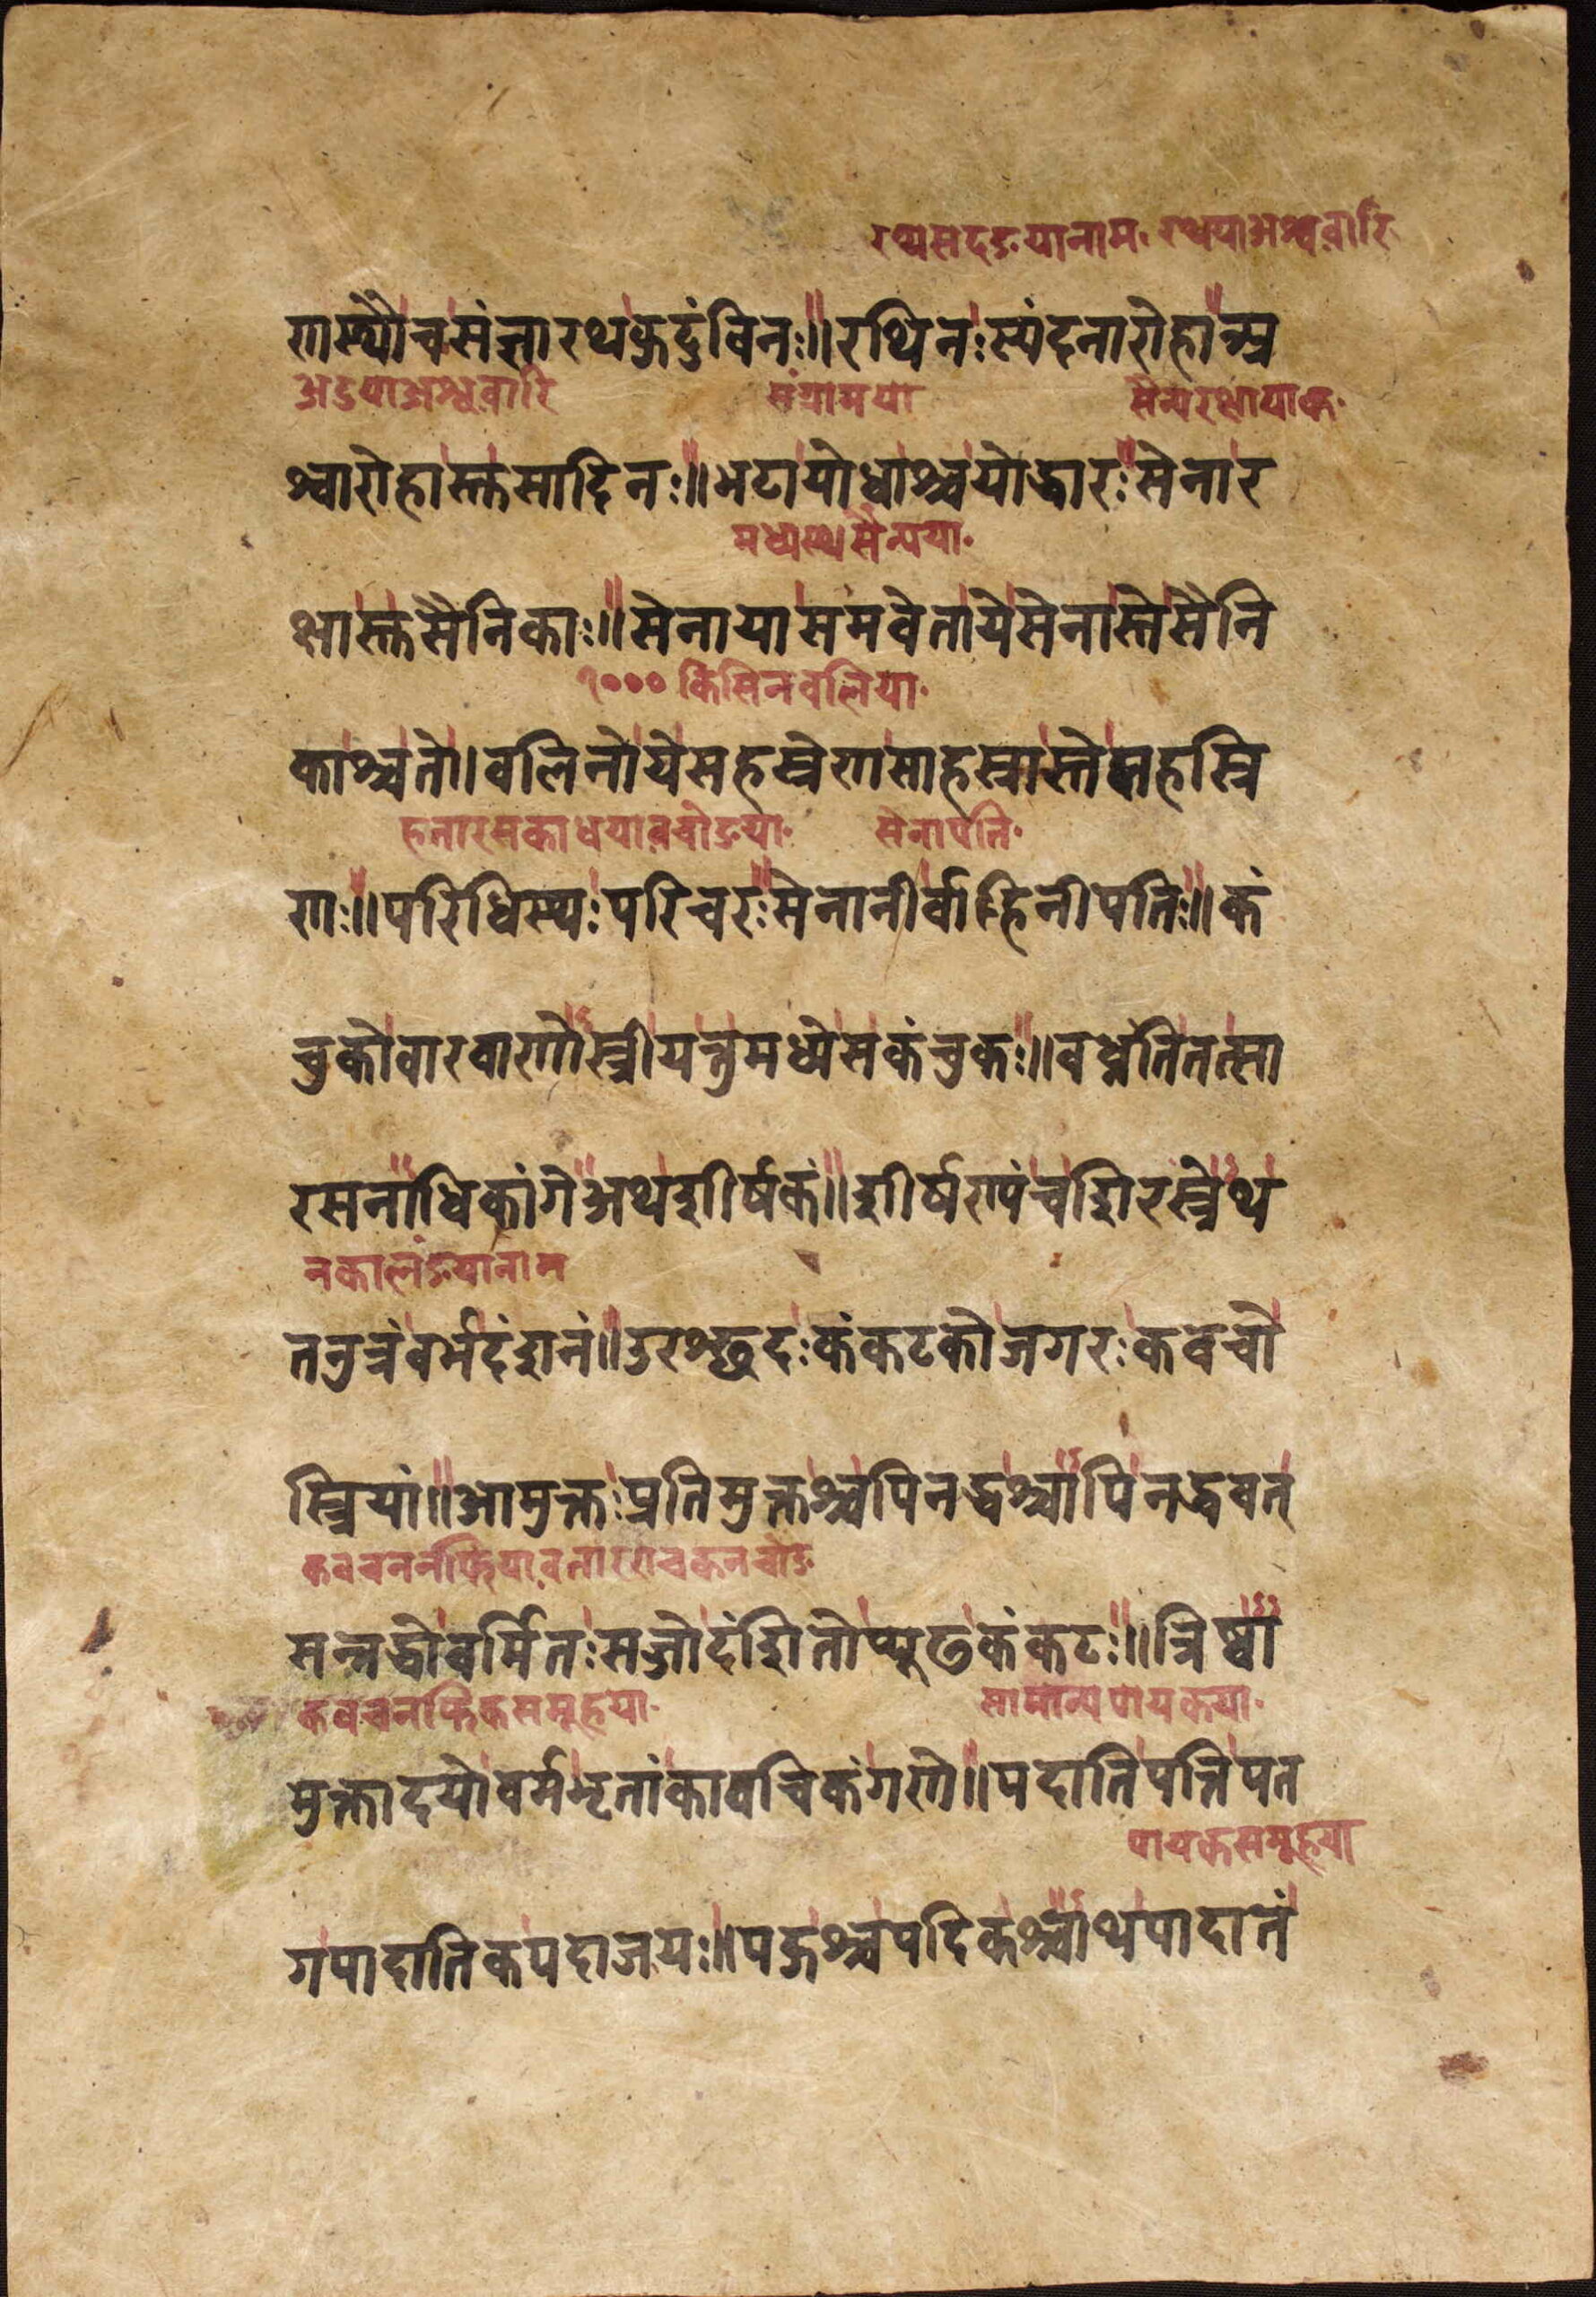 रथ्यसदङयानाम· रथयाअश्ववारि
णस्थौचसंज्ञारथकुटुंबिनः॥रथिनःस्यंदनारोहाऽअ
अडुयाअश्ववारि संग्रामया सैन्यरक्षायाक·
श्वारोहास्तुसादिनः॥भटायोधाश्चयोद्धारःसेनार
मध्यस्थसैन्यया·
क्षास्तुसैनिकाः॥सेनायासमवेतायेसेनास्तेसैनि
१००० किसिनवलिया·
काश्चते।वलिनोयेसहस्रेणसाहस्रास्तेसहस्रि
सेनापति·
णः॥परिधिस्थःपरिचरःसेनानीर्वाहिनीपतिः॥कं
चुकोवारवाणोस्त्रीयत्तुमध्येसकंचुकः॥वध्नंतितत्सा
रसनाधिकांगेअथशीर्षकं॥शीर्षण्यंचशिरस्त्रेथ
नकालंङयानाम
तनुत्रंवर्मदंशनं॥उरश्छदःकंकटकोजगरःकवचो
स्त्रियां॥आमुक्तःप्रतिमुक्तश्चपिनद्धश्चापिनद्धवत्
सन्नद्धोवर्मितःसज्जोदंशितोप्यूढकंकटः॥त्रिष्वा
कवचनफिकसमूहया· सामान्यपायकया·
मुक्तादयोवर्मभृतांकावचिकंगणे॥पदातिपत्तिपत
पायकसमूहया
गपादातिकपदाजयः॥पद्गश्चपदिकश्चाथपादातं